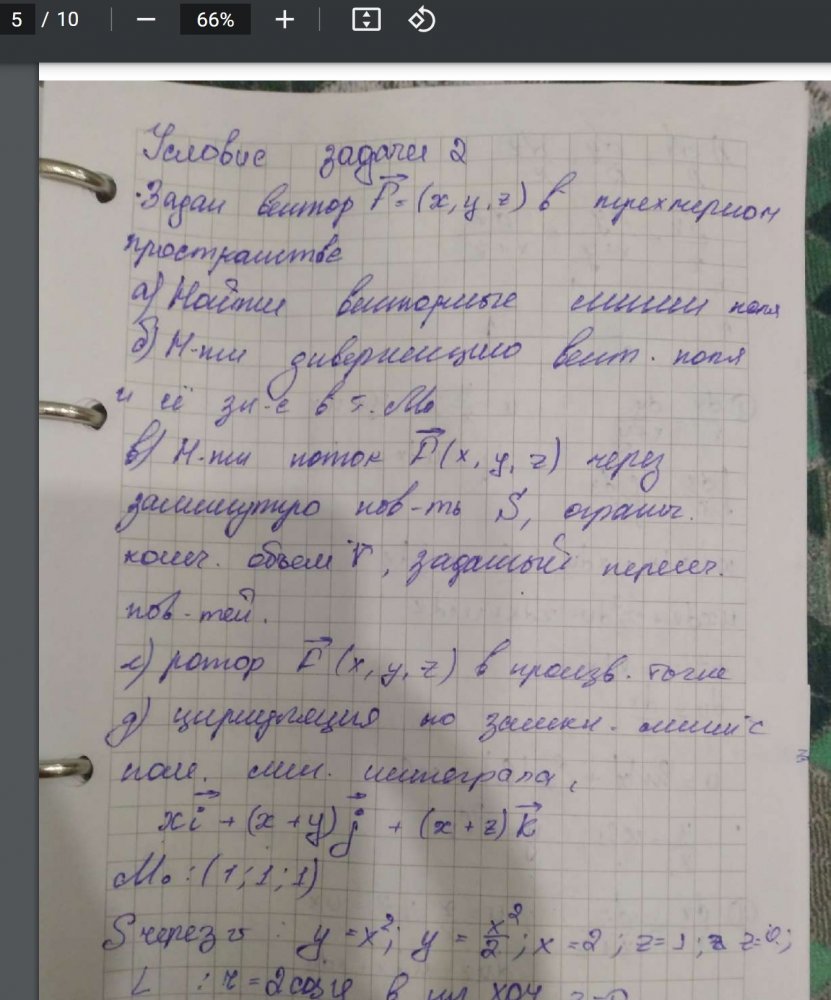 5 / 10
66%
Условие задачи 2
Задан вектор F = (x, y, z) в трехмерном
пространстве
а) Найти векторные линии поля
б) Н-ти дивергенцию вект. поля
и её зн-е в т. М₀
в) Н-ти поток F(x, y, z) через
замкнутую пов-ть S, огранич.
конеч. объем V, заданный пересеч.
пов-тей.
г) ротор F (x, y, z) в произв. точке
д) циркуляция по замкн. линии с
пом. лин. интеграла,
xi + (x+y)j + (x+z)k
М₀ : (1; 1; 1)
S через v : y = x²; y = x²/2; x = 2; z = 1; z=0;
L : r = 2cosφ в пл XOY z=0